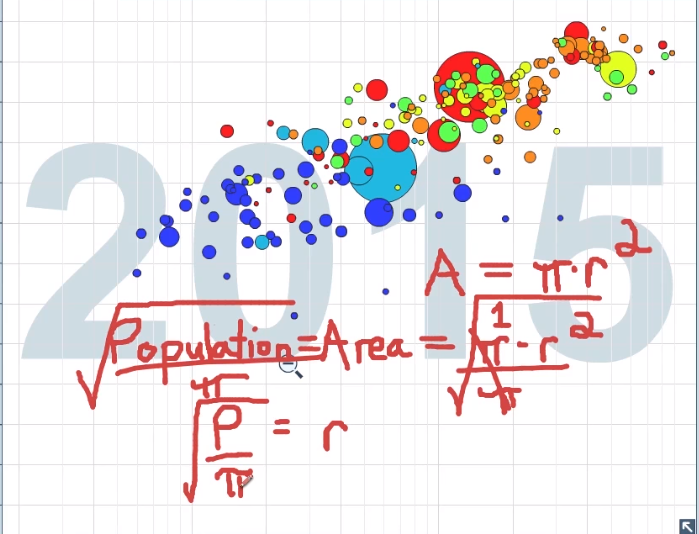 2015
A = π·r²
√Population/π = Area = √π·r²/π
1
√P/π = r